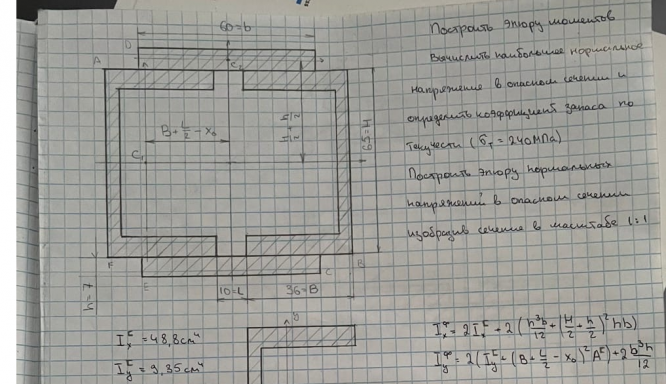 60=b
D
A
C₂
B+L/2-x₀
H/2+h/2
65=H
C₁
F
E
C
B
h=7
10=L
36=B
y
Построить эпюру моментов
Вычислить наибольшее нормальное
напряжение в опасном сечении и
определить коэффициент запаса по
текучести (σ_T = 240МПа)
Построить эпюру нормальных
напряжений в опасном сечении
изобразив сечение в масштабе 1:1
I_x^C = 48,8см⁴
I_y^C = 9,35см⁴
I_x^Ф = 2I_x^C + 2(h³b/12 + (H/2 + h/2)² hb)
I_y^Ф = 2(I_y^C + (B + L/2 - x₀)² A^C) + 2 b³h/12